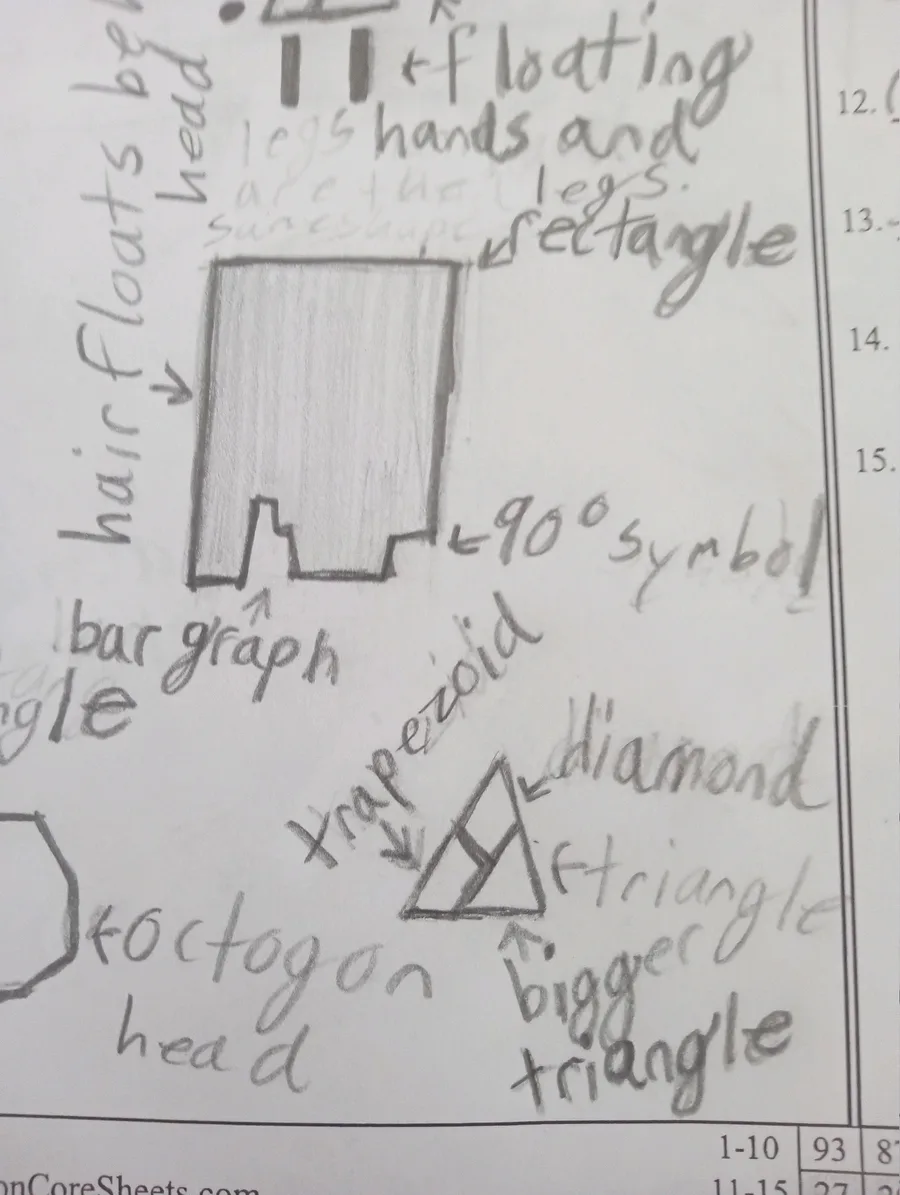 ←floating
hands and
legs.
legs
are the
same shape
←rectangle
hair floats
head
←90° symbol
bar graph
gle
trapezoid
diamond
←triangle
bigger
triangle
←Octogon
head
12.
13.
14.
15.
1-10 93 8
onCoreSheets.com
11-15 27